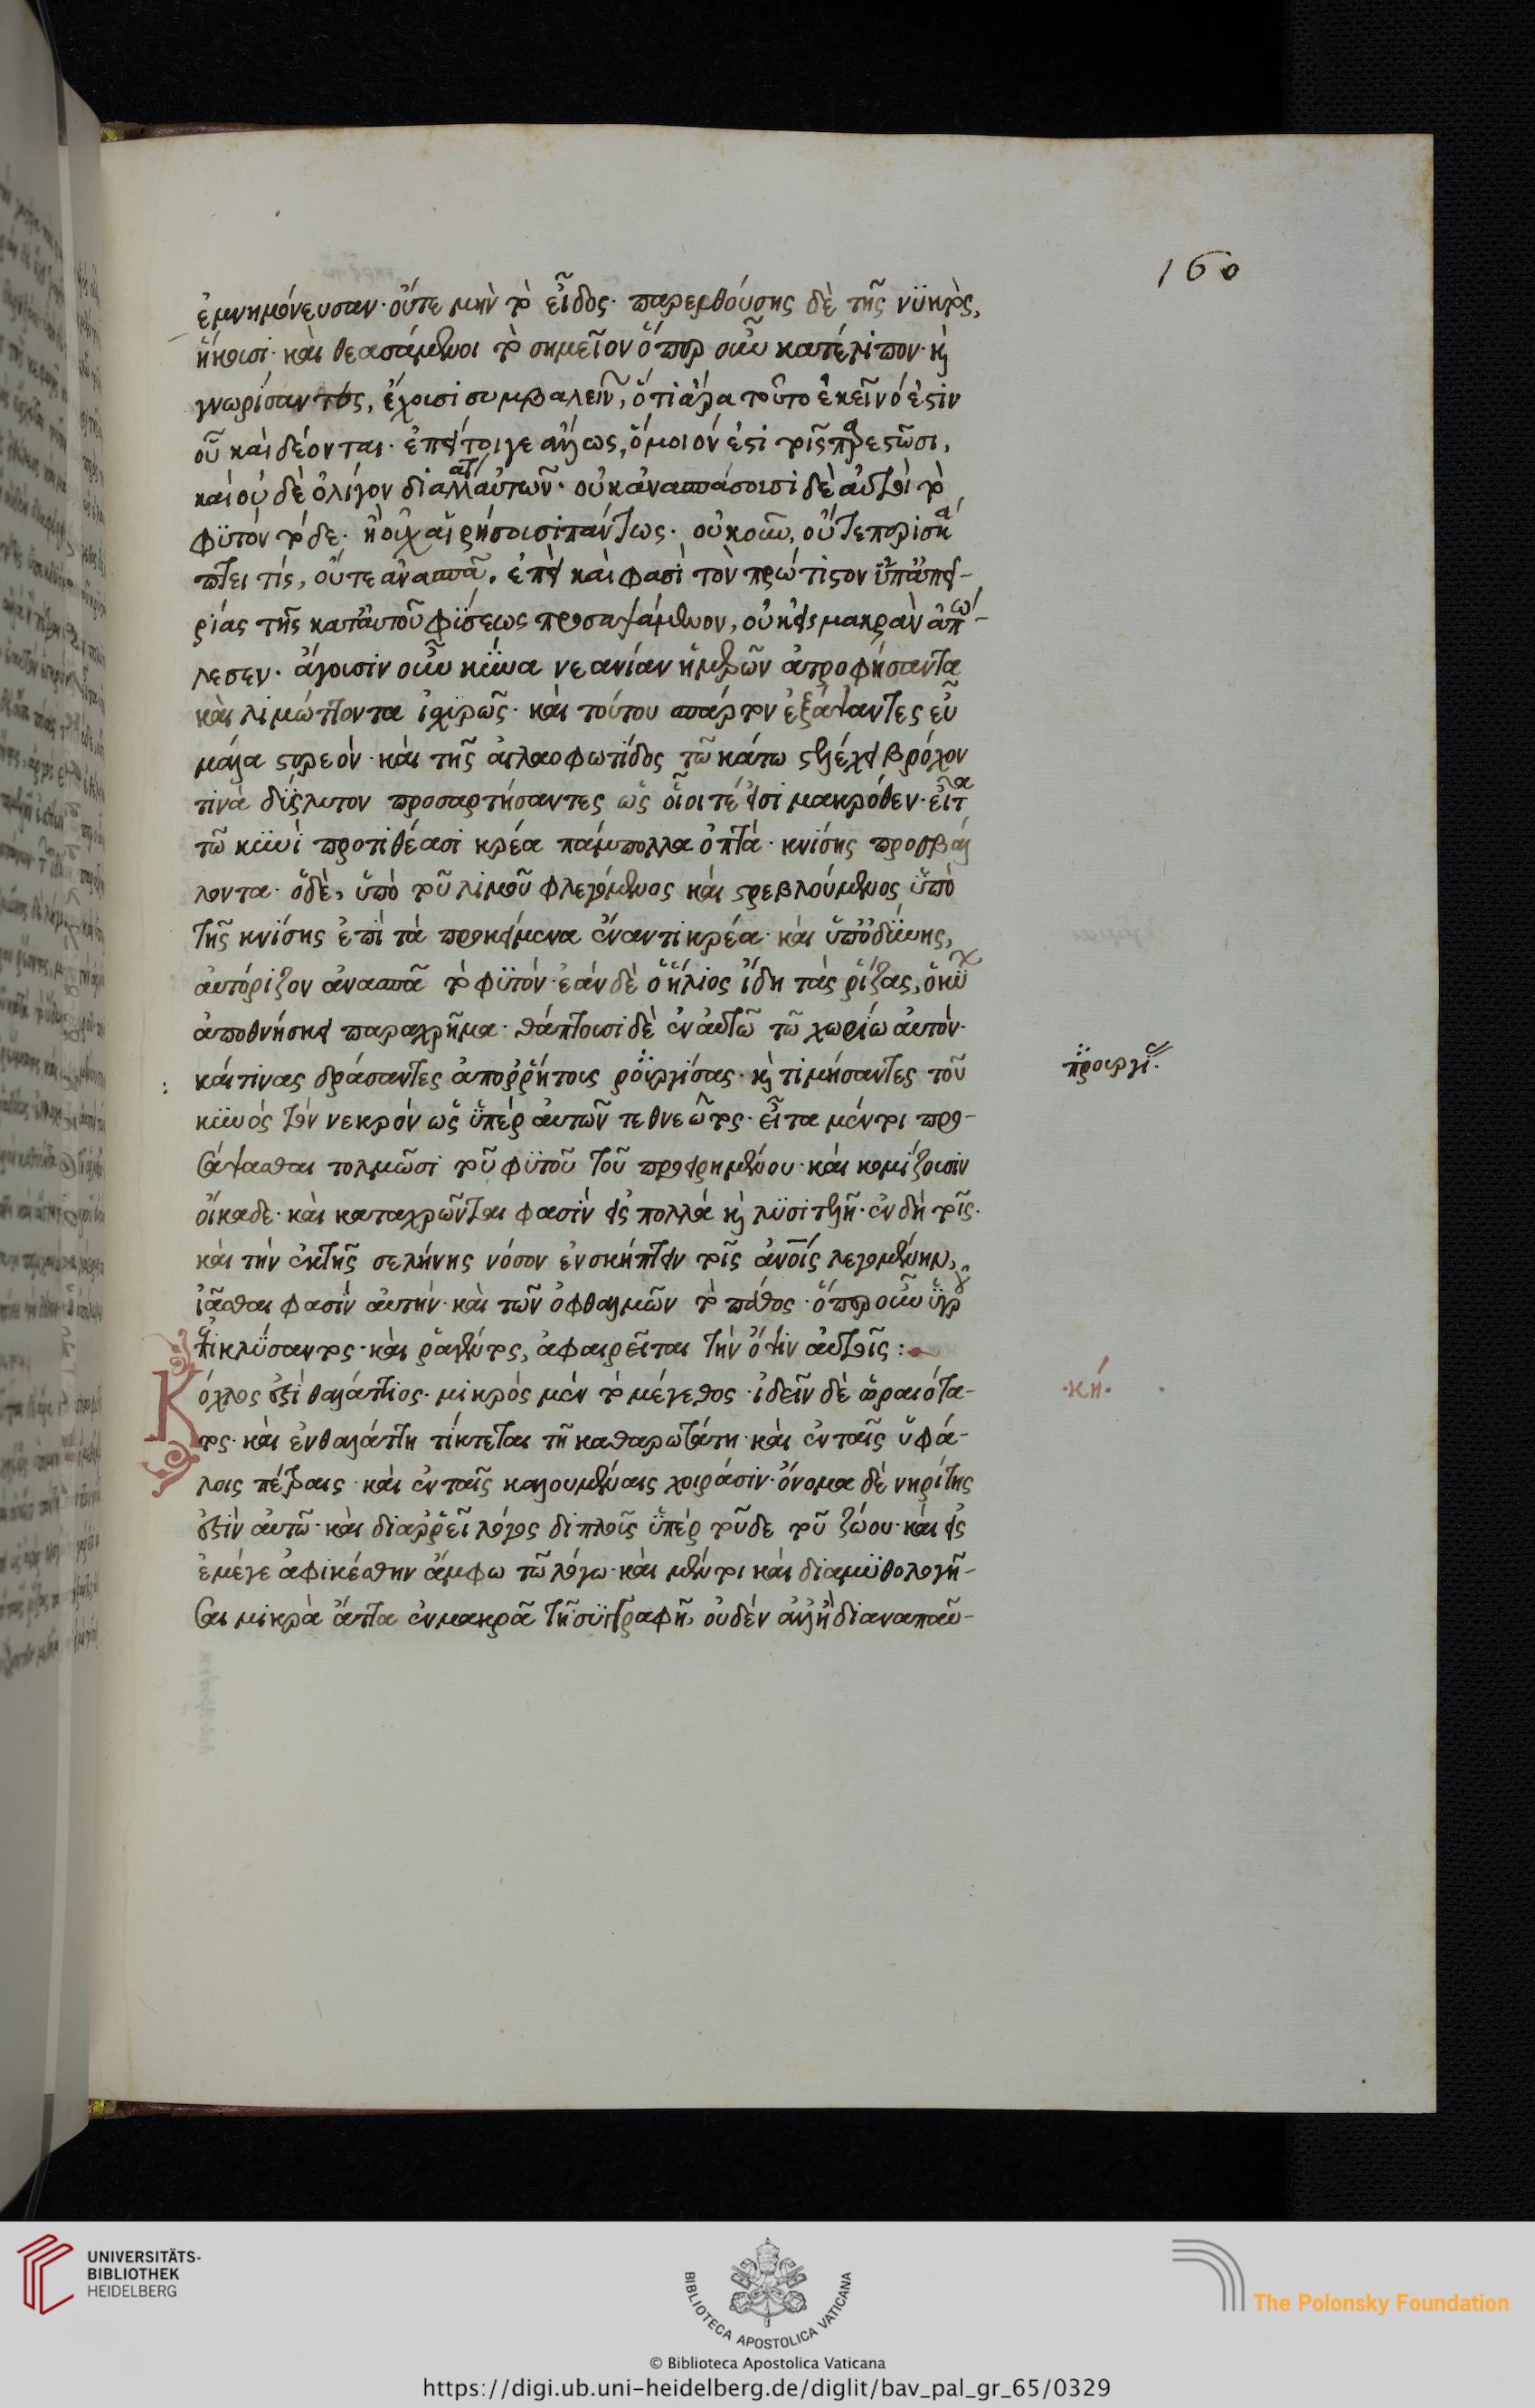 160
ἐμνημόνευσαν· οὔτε μὴν τὸ εἶδος· παρελθούσης δὲ τῆς νϋκτὸς,
ἥκουσι· καὶ θεασάμενοι τὸ σημεῖον ὅπερ οὖν κατέλιπον· κὶ
γνωρίσαντες, ἔχουσι συμβαλεῖν, ὅτι ἄρα τοῦτο ἐκεῖνό ἐστιν
οὗ καὶ δέονται· ἐπεί τοιγε ἄλλως, ὅμοιόν ἐστι τοῖς παρεστῶσι,
καὶ οὐδὲ ὀλίγον διαλλάτ αὐτῶν· οὐκ ἀνασπάσουσι δὲ αὐτοὶ τὸ
φϋτὸν τόδε· ἢ οὐ χαιρήσουσι πάντως· οὐκοῦν, οὔτε περισκά
πτει τίς, οὔτε ἀνασπᾶ. ἐπεὶ καὶ φασὶ τὸν πρώτιστον ὑπ' ἀπει-
ρίας τῆς κατ' αὐτοῦ φύσεως προσαψάμενον, οὐκ εἰς μακρὰν ἀπώ-
λεσεν· ἄγουσιν οὖν κύνα νεανίαν ἡμερῶν ἀτροφήσαντα
καὶ λιμώττοντα ἰσχϋρῶς· καὶ τούτου σπάρτον ἐξάψαντες εὖ
μάλα στερεόν· καὶ τῆς ἀγλαοφωτίδος τῶ κάτω στελέχει βρόχον
τινὰ δύσλυτον προσαρτήσαντες ὡς οἷοι τέ εἰσι μακρόθεν· εἶτα
τῶ κϋνὶ προτιθέασι κρέα πάμπολλα ὀπτά· κνίσης προσβάλ
λοντα· ὁ δὲ, ὑπὸ τοῦ λιμοῦ φλεγόμενος καὶ στρεβλούμενος ὑπὸ
τῆς κνίσης ἐπὶ τὰ προκείμενα ἔναντι κρέα· καὶ ὑπὸ δύνης,
αὐτόριζον ἀνασπᾶ τὸ φϋτόν· ἐὰν δὲ ὁ ἥλιος ἴδη τὰς ῥίζας, ὁ κύ
ἀποθνήσκει παραχρῆμα· θάπτουσι δὲ ἐν αὐτῶ τῶ χωρίω αὐτόν·
καί τινας δράσαντες ἀπορρήτους ροϋργίσας· κὶ τιμήσαντες τοῦ
πρ̈ουργί.
κϋνὸς τὸν νεκρὸν ὡς ὑπὲρ αὐτῶν τεθνεῶτος· εἶτα μέντοι προ-
σάψασθαι τολμῶσι τοῦ φϋτοῦ τοῦ προειρημένου· καὶ κομίζουσιν
οἴκαδε· καὶ καταχρῶνται φασὶν εἰς πολλὰ κὶ λϋσιτελῆ· ἐν δὴ τοῖς·
καὶ τὴν ἐκ τῆς σελήνης νόσον ἐνσκήπτειν τοῖς ἀνοῖς λεγομένην,
ἰᾶσθαι φασὶν αὐτήν· καὶ τῶν ὀφθαλμῶν τὸ πάθος· ὅπερ οὖν ὑγροῦ
ἐπικλύσαντος· καὶ ῥαγέντος, ἀφαιρεῖται τὴν ὄψιν αὐτοῖς:
Κόχλος ἐστὶ θαλάττιος· μικρὸς μὲν τὸ μέγεθος· ἰδεῖν δὲ ὡραιότα-
·κή·
τος· καὶ ἐν θαλάττη τίκτεται τῆ καθαρωτάτη· καὶ ἐν ταῖς ὑφά-
λοις πέτραις· καὶ ἐν ταῖς καλουμέναις χοιράσιν· ὄνομα δὲ νηρίτης
ἐστὶν αὐτῶ· καὶ διαρρεῖ λόγος διπλοῦς ὑπὲρ τοῦδε τοῦ ζώου· καὶ εἰς
ἐμέγε ἀφικέσθην ἄμφω τῶ λόγω· καὶ μέντοι καὶ διαμϋθολογῆ-
σαι μικρὰ ἄττα ἐν μακρᾶ τῆ συγγραφῆ, οὐδὲν ἀλλ' ἢ διαναπαῦ-
UNIVERSITÄTS-
BIBLIOTHEK
HEIDELBERG
BIBLIOTECA APOSTOLICA VATICANA
The Polonsky Foundation
© Biblioteca Apostolica Vaticana
https://digi.ub.uni-heidelberg.de/diglit/bav_pal_gr_65/0329